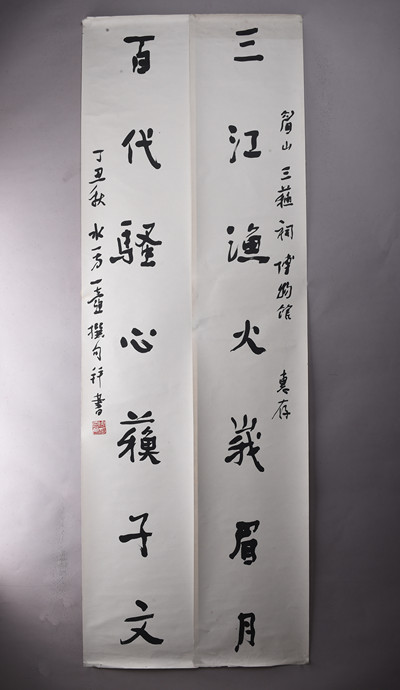 眉山三蘓祠博物館 惠存
三江渔火峩眉月
百代騷心蘓子文
丁丑秋 水 壺撰句并書